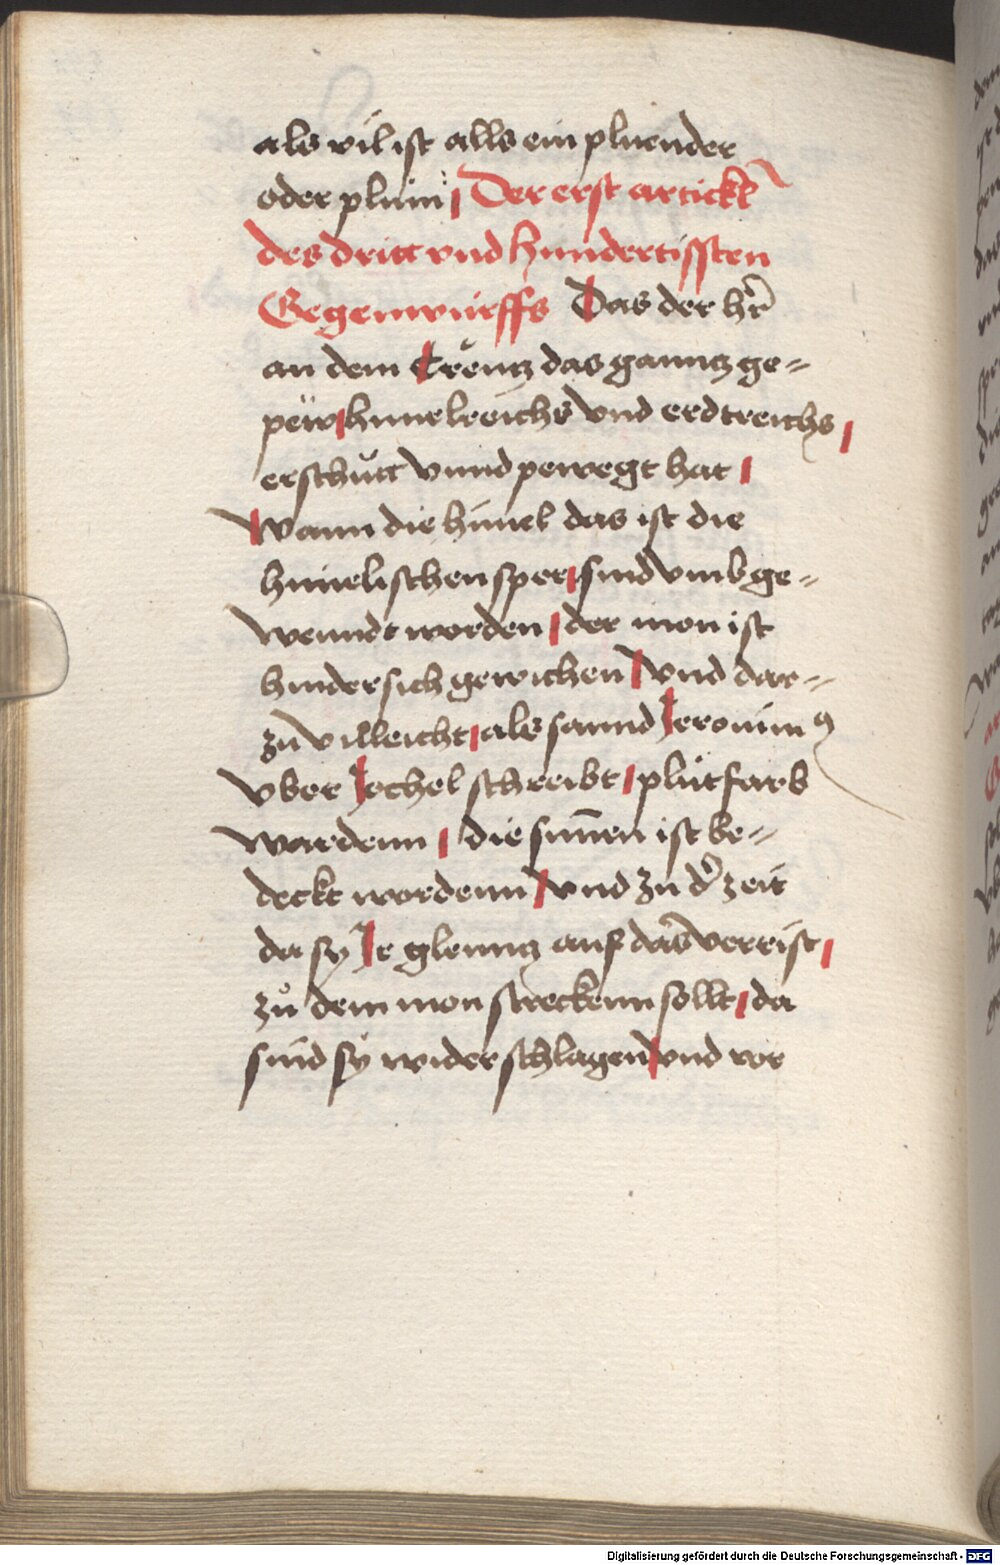 als vil ist alls ein pluender
oder plum Der erst artickl
des dritt vnd hundertissten
Gegenwürffs Das der hr̃
an dem Creutz das ganntz ge=
pew hmelreichs vnd erdtreichs
erschütt vnnd pewegt hat
Wann die himel das ist die
himelischen sper sind vmbge=
wenndt worden der mon ist
hindersich gewichen vnd dar=
zu villeicht als sannd Jeronimꝰ
vber Jechel schreibt plutfarb
wardenn die sunnen ist be=
deckt wordenn vnd zu dˀ zeit
da sy Jr glenntz auf das verrist
zu dem mon streckenn sollt da
sind sy widerschlagen vnd vor
Digitalisierung gefördert durch die Deutsche Forschungsgemeinschaft - DFG